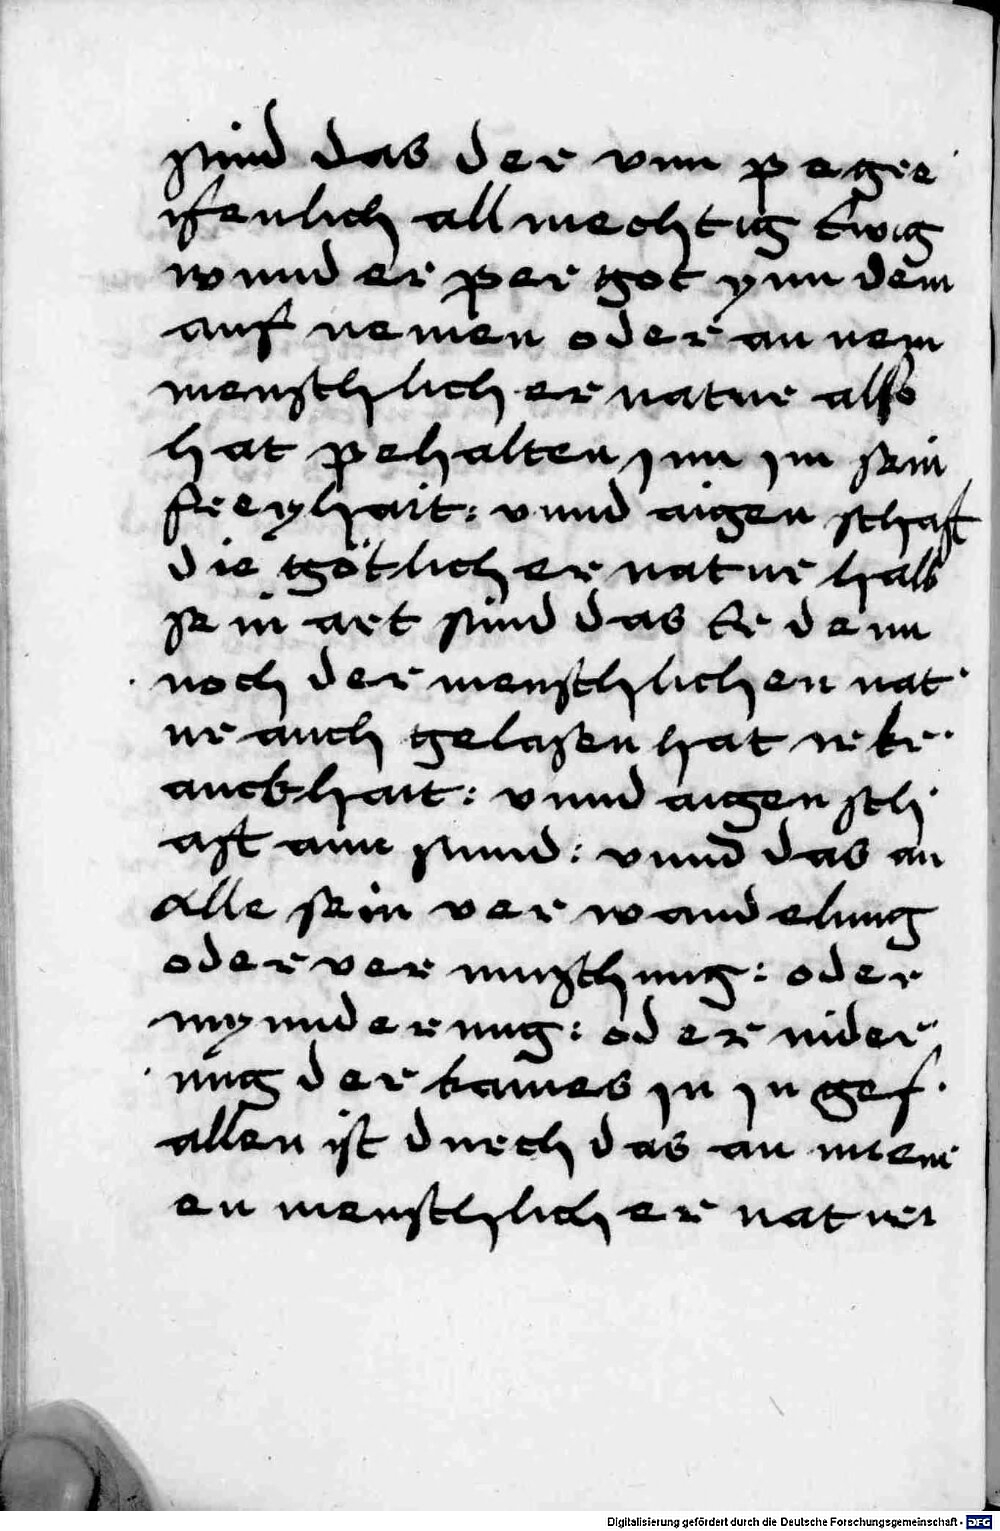 sünd das der vnn pegre
ifenlich allmechtig Ewig
wunderper got ynn dem
auf nemen oder an nem
menschlicher natur also
hat pehalten jnn jm sein
freyhait: vnnd aigenschaft
die götlicher natur halb
sein art sind das Er denn
noch der menschlichen nat
ur auch gelasen hat ir kr
anckhait: vnnd aigensch
aft ann sünnd: vnnd das an
alle sein verwandelung
oder vermischung: oder
mynnderung: oder nider
ung der kaines jn jn gef
allen ist durch das an niem
en menschlicher natur
Digitalisierung gefördert durch die Deutsche Forschungsgemeinschaft - DFG